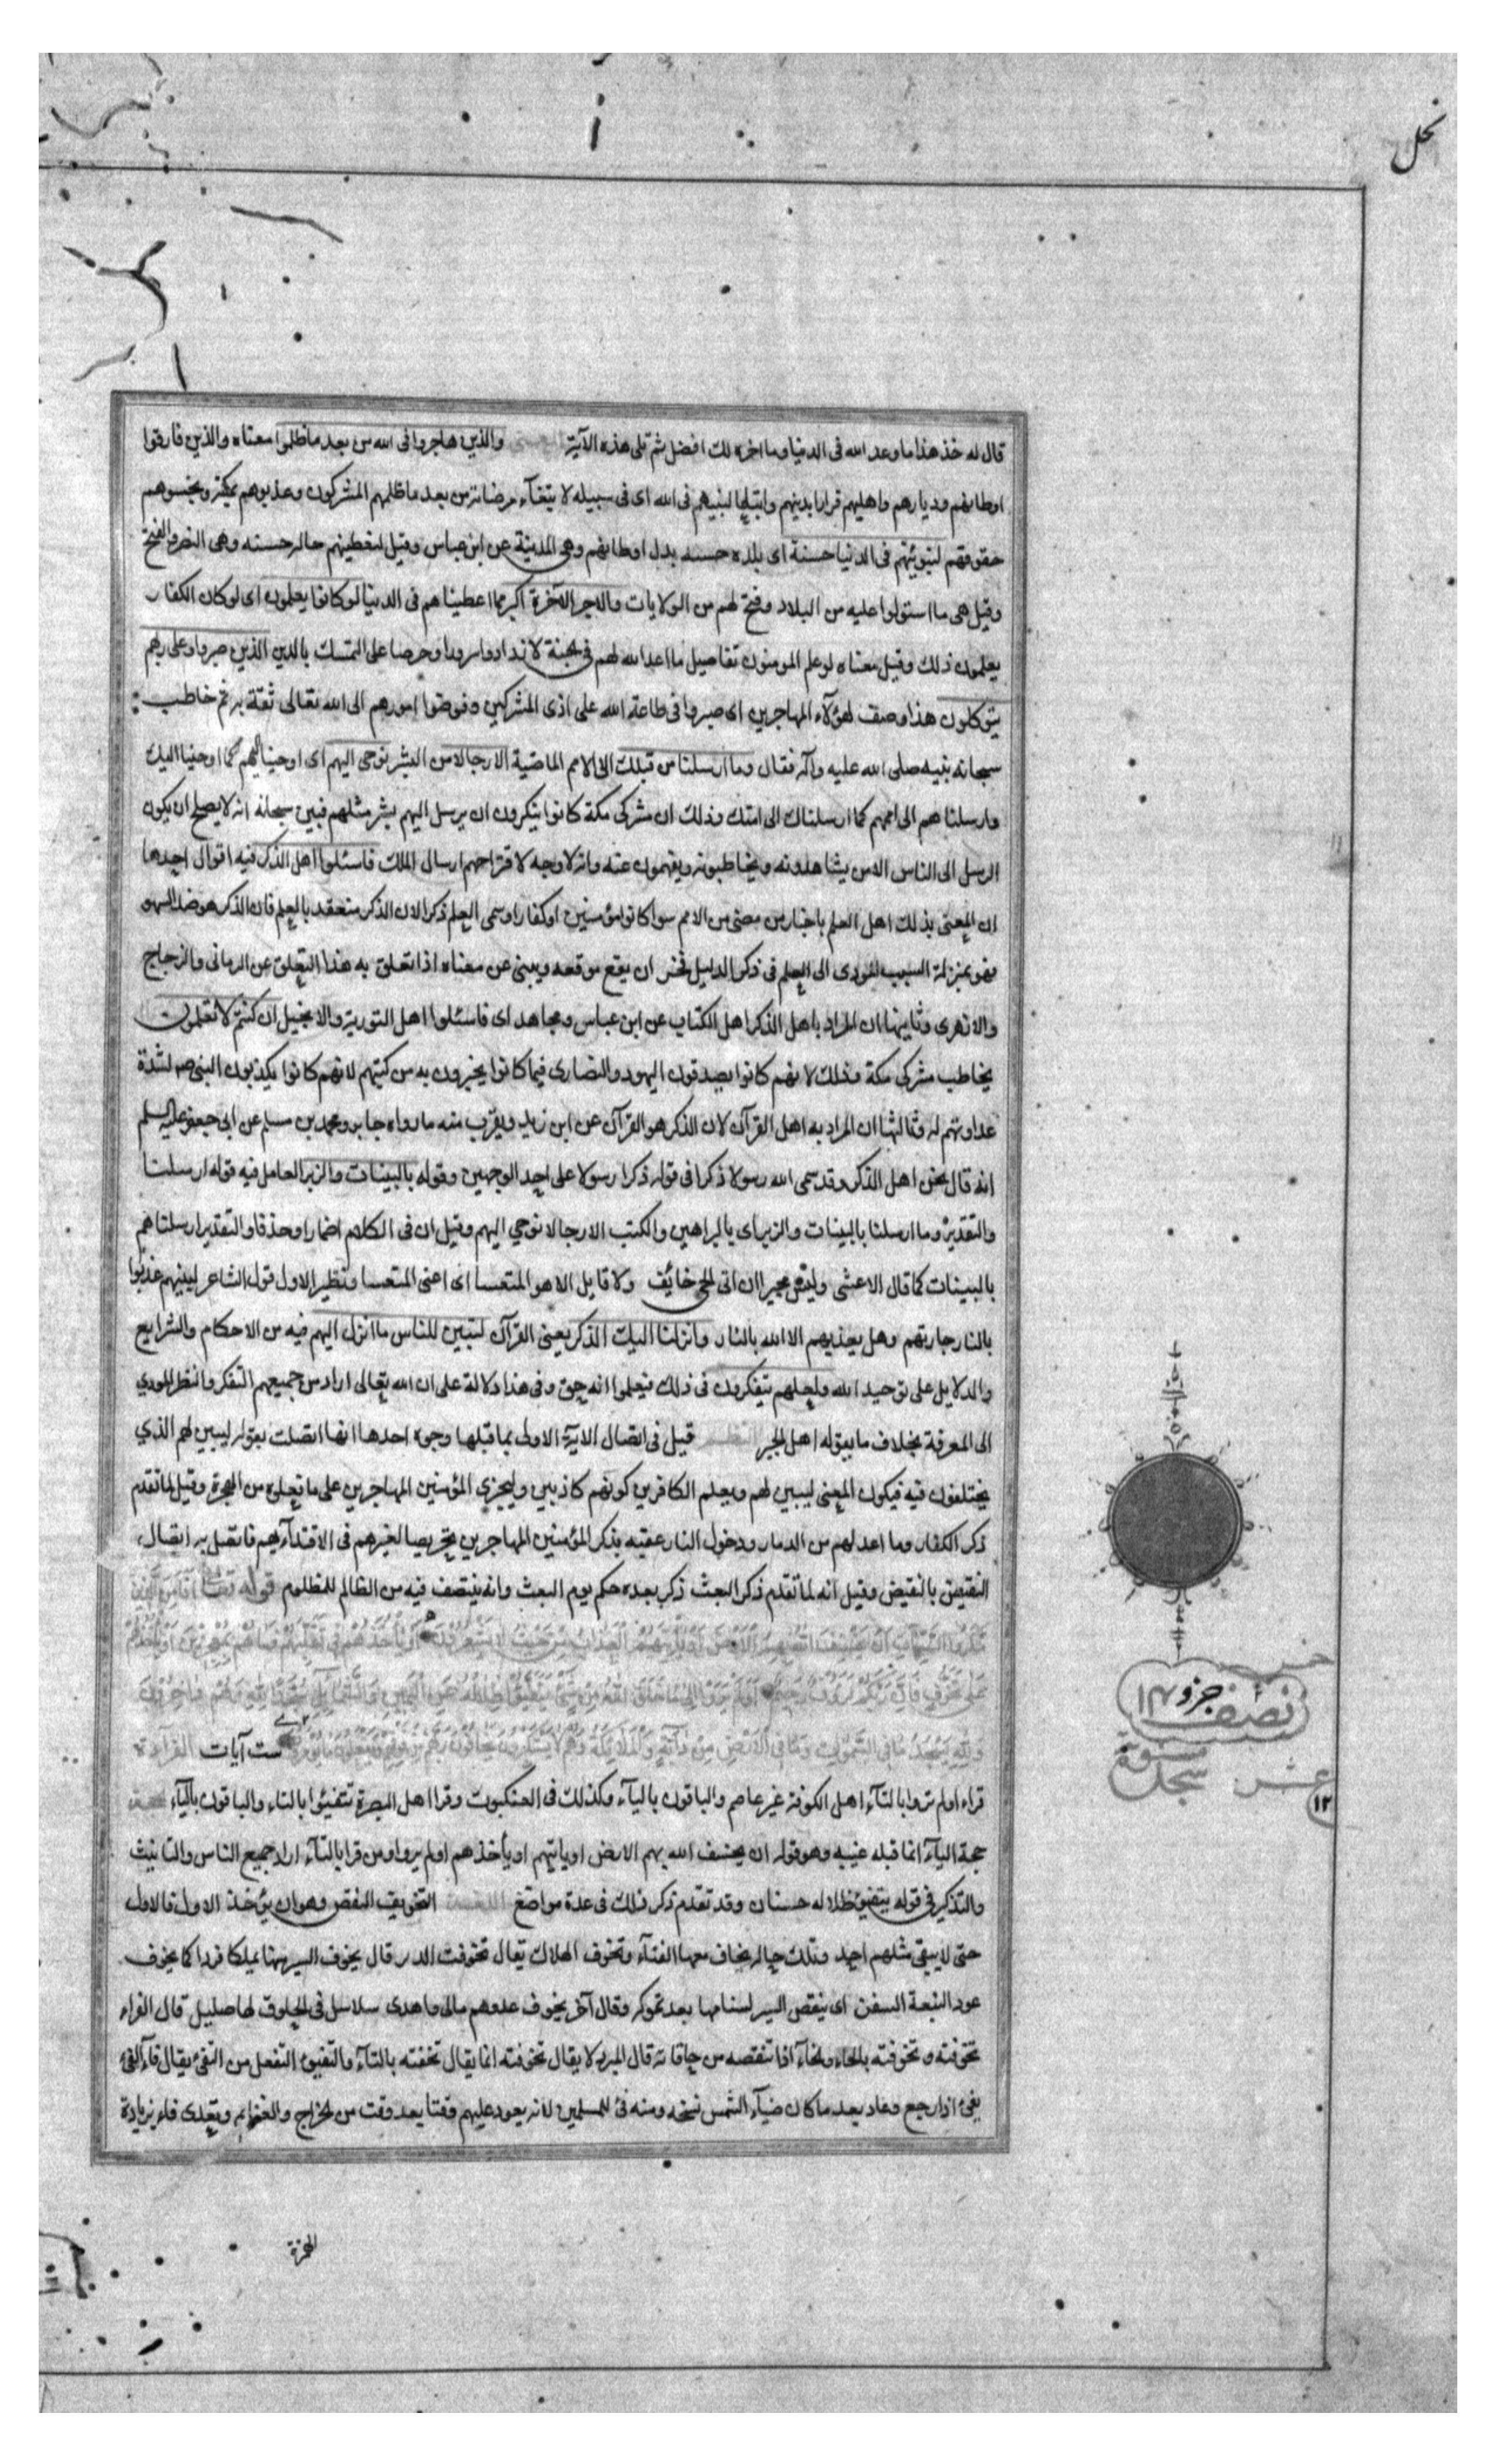 نحل
قال له خذ هذا ما وعد الله فى الدنيا وما اخره لك افضل ثم تلى هذه الآية والذين هاجروا فى الله من بعد ما ظلموا معناه والذين فارقوا
اوطانهم وديارهم واهليهم فرارا بدينهم واتباعا لنبيهم فى الله اى فى سبيله لابتغآء مرضاته من بعد ما ظلمهم المشركون وعذبوهم بمكة وبخسوهم
حقوقهم لنبوئنهم فى الدنيا حسنة اى بلدة حسنه بدل اوطانهم وهى المدينة عن ابن عباس وقيل لنعطينهم حاله حسنه وهى النصر والفتح
وقيل هى ما استولوا عليه من البلاد وفتح لهم من الولايات ولاجر الآخرة اكبر مما اعطيناهم فى الدنيا لو كانوا يعلمون اى لو كان الكفار
يعلمون ذلك وقيل معناه لو علم المومنون تفاصيل ما اعد الله لهم فى الجنة لازدادوا سرورا وحرصا على التمسك بالدين الذين صبروا وعلى ربهم
يتوكلون هذا وصف لهؤلآء المهاجرين اى صبروا فى طاعة الله على اذى المشركين وفوضوا امورهم الى الله تعالى ثقة به ثم خاطب
سبحانه نبيه صلى الله عليه وآله فقال وما ارسلنا من قبلك الى الامم الماضية الا رجالا من البشر نوحى اليهم اى اوحينا اليهم كما اوحينا اليك
وارسلناهم الى اممهم كما ارسلناك الى امتك وذلك ان مشركى مكة كانوا ينكرون ان يرسل اليهم بشر مثلهم فبين سبحانه انه لا يصلح ان يكون
الرسل الى الناس الا من يشاهدونه ويخاطبونه ويفهمون عنه وانه لا وجه لاقتراحهم ارسال الملك فاسئلوا اهل الذكر فيه اقوال احدها
ان المعنى بذلك اهل العلم باخبار من مضى من الامم سوا كانوا مؤمنين او كفارا وسمى العلم ذكرا لان الذكر منعقد بالعلم فان الذكر هو ضد السهو
فهو بمنزلة السبب المؤدى الى العلم فى ذكر الدليل فحسن ان يقع موقعه وينبى عن معناه اذا تعلق به هذا التعلق عن الرمانى والزجاج
والازهرى وثانيها ان المراد باهل الذكر اهل الكتاب عن ابن عباس ومجاهد اى فاسئلوا اهل التورية والانجيل ان كنتم لا تعلمون
يخاطب مشركى مكة وذلك لانهم كانوا يصدقون اليهود والنصارى فيما كانوا يخبرون به من كتبهم لانهم كانوا يكذبون النبى ص لشدة
عداوتهم له وثالثها ان المراد به اهل القرآن لان الذكر هو القرآن عن ابن زيد ويقرب منه ما رواه جابر ومحمد بن مسلم عن ابى جعفر عليه السلم
انه قال نحن اهل الذكر وقد سمى الله رسولا ذكرا فى قوله ذكرا رسولا على احد الوجهين وقوله بالبينات والزبر العامل فيه قوله ارسلنا
والتقدير وما ارسلنا بالبينات والزبر اى بالبراهين والكتب الا رجالا نوحي اليهم وقيل ان فى الكلام اضمارا وحذفا والتقدير ارسلناهم
بالبينات كما قال الاعشى وليس مجيرا ان اتى الحى خائف ولا قايل الا هو المتعيبا اى اعنى المتعيبا ونظير الاول قول الشاعر نبيتهم عذبوا
بالنار جارتهم وهل يعذبهم الا الله بالنار وانزلنا اليك الذكر يعنى القرآن لتبين للناس ما انزل اليهم فيه من الاحكام والشرايع
والدلايل على توحيد الله ولعلهم يتفكرون فى ذلك فيعلموا انه حق وفى هذا دلالة على ان الله تعالى اراد من جميعهم التفكر والنظر المودي
الى المعرفة بخلاف ما يقوله اهل الجبر النظم قيل فى اتصال الآية الاولى بما قبلها وجوه احدها انها اتصلت بقوله ليبين لهم الذي
يختلفون فيه فيكون المعنى ليبين لهم وبعلم الكافرين كونهم كاذبين وليجزي المؤمنين المهاجرين على ما فعلوه من الهجرة وقيل لما تقدم
ذكر الكفار وما اعد لهم من الدمار ودخول النار عقبه بذكر المؤمنين المهاجرين تحريصا لغيرهم فى الاقتدآء بهم فاتصل به اتصال
النقيض بالنقيض وقيل انه لما تقدم ذكر البعث ذكر بعده حكم يوم البعث وانه ينتصف فيه من الظالم للمظلوم قوله تعالى افامن الذين
مكروا السيئات ان يخسف الله بهم الارض او ياتيهم العذاب من حيث لا يشعرون او ياخذهم فى تقلبهم فما هم بمعجزين او ياخذهم
على تخوف فان ربكم لرؤف رحيم اولم يروا الى ما خلق الله من شئ يتفيؤ ظلاله عن اليمين والشمائل سجدا لله وهم داخرون
ولله يسجد ما فى السموات وما فى الارض من دابة والملائكة وهم لا يستكبرون يخافون ربهم من فوقهم ويفعلون ما يؤمرون ست آيات القرآءة
قراء اولم تروا بالتآء اهل الكوفة غير عاصم والباقون باليآء وكذلك فى العنكبوت وقرا اهل البصرة تتفيئوا بالتاء والباقون باليآء الحجة
حجة اليآء انما قبله غيبة وهو قوله ان يخسف الله بهم الارض او ياتيهم او يأخذهم اولم يروا ومن قرا بالتآء اراد جميع الناس والتانيث
والتذكير فى قوله يتفيؤ ظلاله حسنان وقد تقدم ذكر ذلك فى عدة مواضع اللغة التخويف التنقص وهو ان يؤخذ الاول فالاول
حتى لا يبقى مثلهم احد وتلك حاله يخاف معها الفنآء وتخوف الهلاك يقال تخوفت الدهر قال يخوف السير منها تمكا قردا كما يخوف
عود النبعة السفن اى ينقص السير لسنامها بعد تموكه وقال آخر يخوف عدوهم مالى واهدى سلاسل فى الحلوق لها صليل قال الفراء
تحوفته وتخوفته بالحاء والخآء اذا تنقصه من حافاته قال المبرد لا يقال تحوفته انما يقال تخفته بالتآء والتفيؤ التفعل من الفئ يقال فآء الفئ
يفئ اذا رجع وعاد بعد ما كان ضيآء الشمس نسخه ومنه فئ المسلمين لانه يعود عليهم وقتا بعد وقت من الخراج والغنايم ويعدى فاء بزيادة
الهمزة
نصف جزو ۱۴
عشر
۱۲